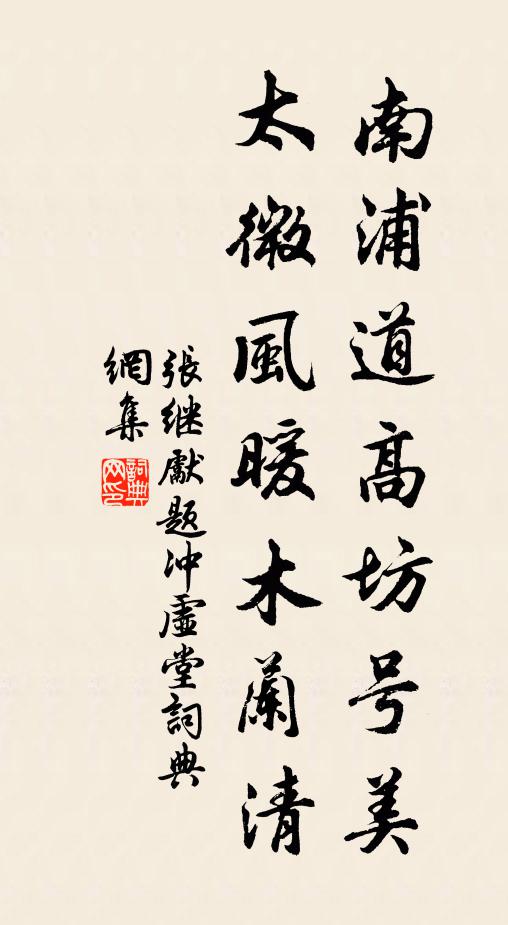 南浦道高坊号美
太微風暖木蘭清
張继獻题冲虛堂詞典
網集
詞典
网印